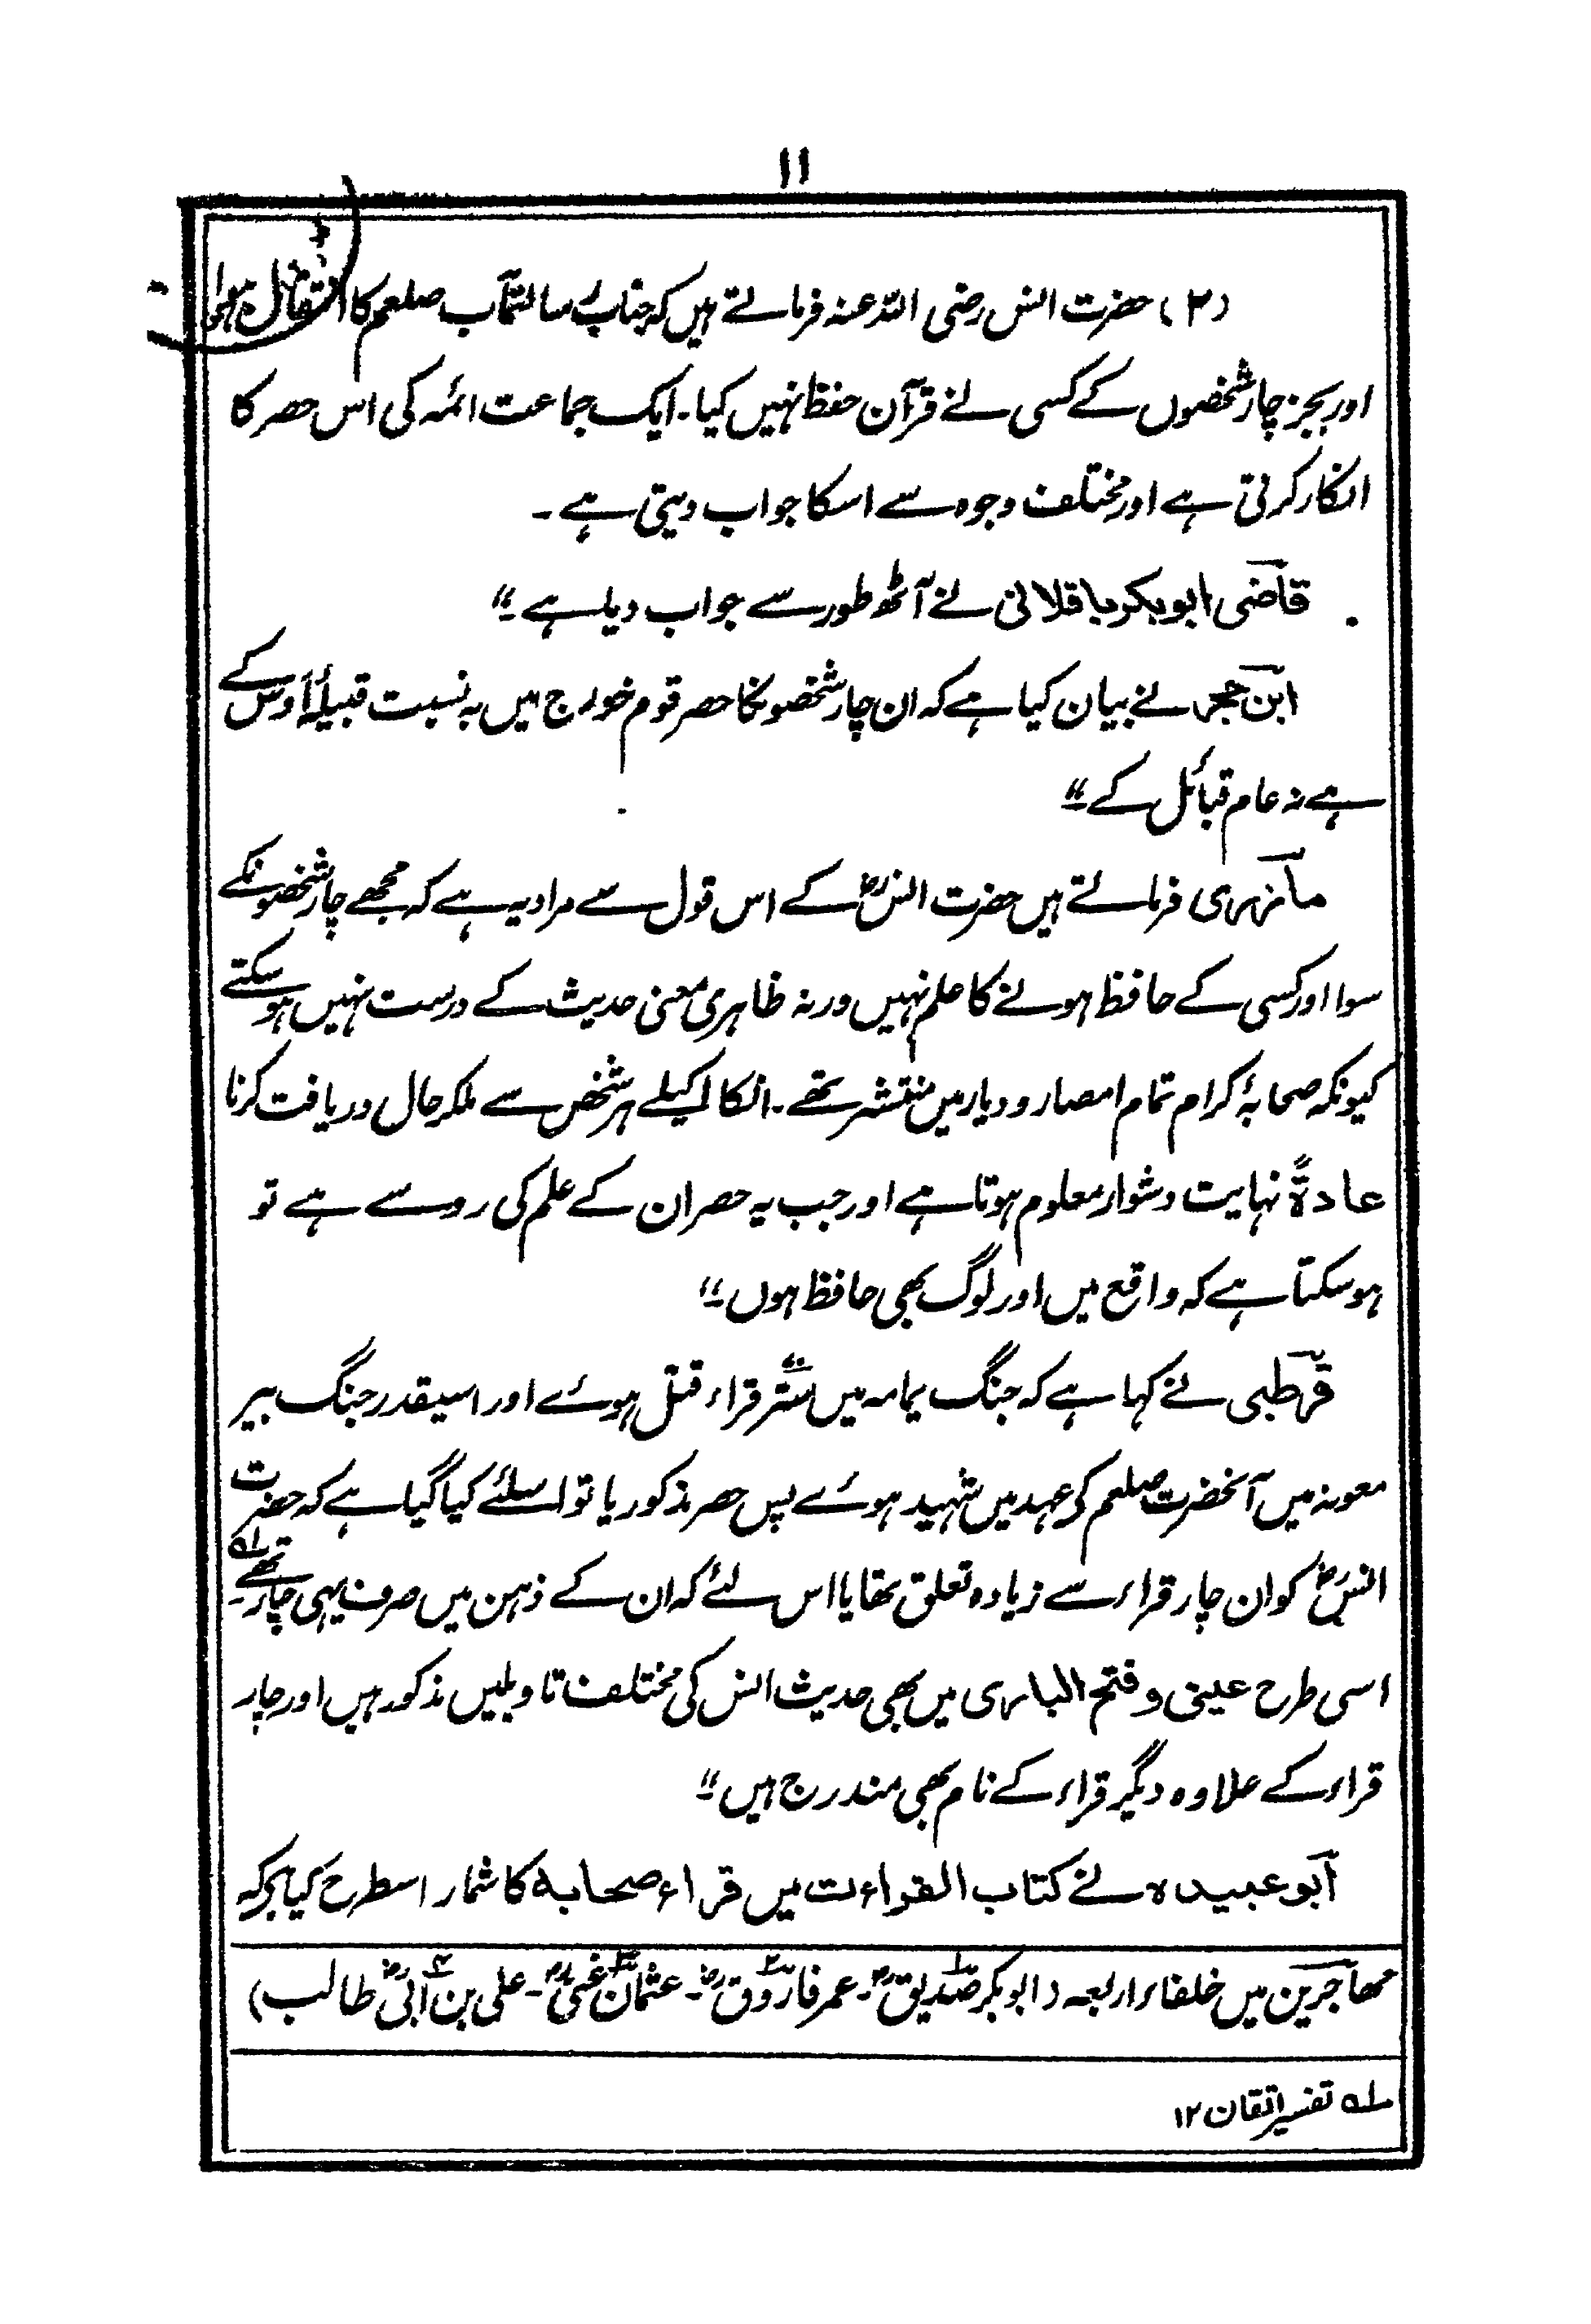 ۱۱
(۲) حضرت انس رضی اللہ عنہ فرماتے ہیں کہ جناب رسالتمآب صلعم کا انتقال ہوا
اور بجز چار شخصوں کے کسی نے قرآن حفظ نہیں کیا۔ ایک جماعت ائمہ کی اس حصر کا
انکار کرتی ہے اور مختلف وجوہ سے اسکا جواب دیتی ہے۔
قاضی ابوبکر باقلانی نے آٹھ طور سے جواب دیا ہے۔"
ابن حجر نے بیان کیا ہے کہ ان چار شخصونکا حصر قوم خزرج میں بہ نسبت قبیلۂ اوس کے
ہے نہ عام قبائل کے۔"
مازری فرماتے ہیں حضرت انسؓ کے اس قول سے مراد یہ ہے کہ مجھے چار شخصونکے
سوا اور کسی کے حافظ ہونے کا علم نہیں ورنہ ظاہری معنی حدیث کے درست نہیں ہوسکتے
کیونکہ صحابۂ کرام تمام امصار و دیار میں منتشر تھے۔ انکا اکیلے ہر شخص سے ملکر حال دریافت کرنا
عادۃً نہایت دشوار معلوم ہوتا ہے اور جب یہ حصر ان کے علم کی رو سے ہے تو
ہوسکتا ہے کہ واقع میں اور لوگ بھی حافظ ہوں۔"
قرطبی نے کہا ہے کہ جنگ یمامہ میں ستر قراء قتل ہوئے اور اسیقدر جنگ بیر
معونہ میں آنحضرت صلعم کی عہد میں شہید ہوئے پس حصر مذکور یا تو اسلئے کیا گیا ہے کہ حضرت
انسؓ کو ان چار قراء سے زیادہ تعلق تھا یا اس لئے کہ ان کے ذہن میں صرف یہی چار تھے۔ ؎۱
اسی طرح عینی و فتح الباری میں بھی حدیث انس کی مختلف تاویلیں مذکور ہیں اور چار
قراء کے علاوہ دیگر قراء کے نام بھی مندرج ہیں۔"
ابو عبیدہ نے کتاب القراءت میں قراء صحابہ کا شمار اسطرح کیا ہے کہ
مھاجرین میں خلفاء اربعہ (ابوبکر صدیقؓ۔ عمر فاروقؓ۔ عثمان غنیؓ۔ علی بن ابیؓ طالب)
؎۱ تفسیر اتقان ۱۲